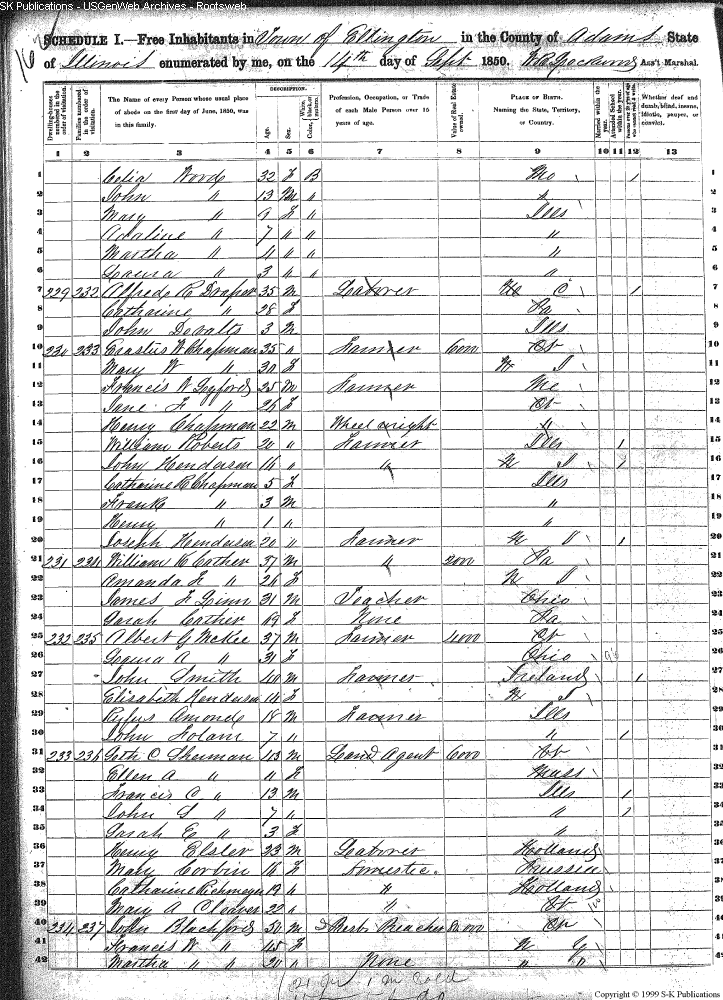 SK Publications - USGenWeb Archives - Rootsweb
SCHEDULE I.—Free Inhabitants in Town of Ellington in the County of Adams State
of Illinois enumerated by me, on the 14th day of Sept 1850. Ass't Marshal.
Dwelling-houses numbered in the order of visitation. Families numbered in the order of visitation. The Name of every Person whose usual place of abode on the first day of June, 1850, was in this family. DESCRIPTION. Age. Sex. Color, White, black, or mulatto. Profession, Occupation, or Trade of each Male Person over 15 years of age. Value of Real Estate owned. PLACE OF BIRTH. Naming the State, Territory, or Country. Married within the year. Attended School within the year. Whether deaf and dumb, blind, insane, idiotic, pauper, or convict.
1 2 3 4 5 6 7 8 9 10 11 12 13
1 Celia Wood 32 F B Mo / 1
2 John " 13 M " " 2
3 Mary " 9 F " Ills 3
4 Adaline " 7 " " " 4
5 Martha " 4 " " " 5
6 Laura " 3 " " " 6
7 229 232 Alfred R Draper 35 M Laborer / 7
8 Catharine " 28 F Pa 8
9 John 3 M Ills 9
10 230 233 Erastus W Chapman 35 " Farmer 6000 Ct 10
11 Mary W " 30 F N J 11
12 Francis 25 M Farmer Me 12
13 Jane F " 26 F Ct 13
14 Henry Chapman 22 M Wheelwright " 14
15 William Roberts 20 " Farmer Ills 1 15
16 John Henderson 16 " " N J 1 16
17 Catharine R Chapman 5 F Ills 17
18 Frank " 3 M " 18
19 Henry " 1 " " 19
20 Joseph Henderson 20 " Farmer N J 1 20
21 231 234 William K Cather 37 M " 2000 Pa 21
22 Amanda F " 26 F N J 22
23 James F Linn 31 M Teacher Ohio 23
24 Sarah Cather 69 F None Pa 24
25 232 235 Albert G McKee 37 M Farmer 4000 Ct 25
26 A " 31 F Ohio 26
27 John Smith 40 M Farmer Ireland / 27
28 Elisabeth Henderson 14 F N J 28
29 Rufus Amonde 18 M Farmer Ills 29
30 John 7 " " 1 30
31 233 236 Seth C Sherman 43 M Land Agent 6000 Ct 31
32 Ellen A " " F Mass 32
33 Francis C " 13 M Ills 1 33
34 John S " 7 " " 1 34
35 Sarah E " 3 F " 35
36 Henry Elsler 23 M Laborer Holland 36
37 Mary Corbin 16 F Domestic. Prussia 37
38 Catharine 19 " " Holland 38
39 Mary A Cleaver 22 " " Ct 39
40 234 237 John Blachford 50 M Presb Preacher 40
41 Francis W " 45 F N Y 41
42 Martha " " 20 " None " " 42
Copyright © 1999 S-K Publications